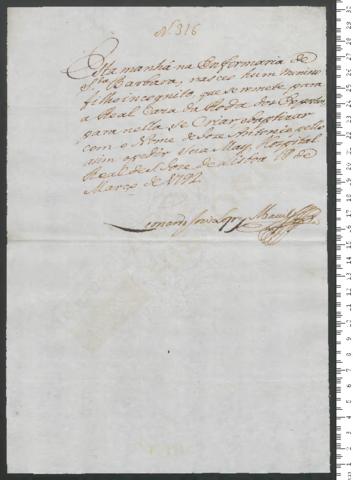 N. 316
Esta manhã na Enfermaria de
S.ta Barbara, nasceo hum menino
filho incognito que se remete para
a Real Caza da Roda dos Expostos
para nella se Criar e baptizar
com o Nome de Joze Antonio pello
assim o pedir sua May. Hospital
Real de S. Joze de Lisboa 19 de
Março de 1792